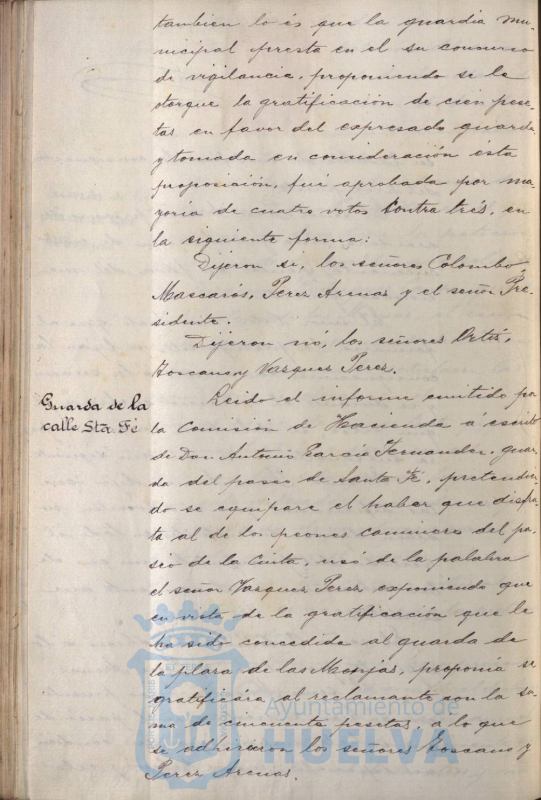 tambien lo és que la guardia mu-
nicipal presta en el su concurso
de vigilancia, proponiendo se le
otorgue la gratificación de cien pese-
tas en favor del expresado guarda
y tomada en consideración ésta
proposición, fué aprobada por ma-
yoría de cuatro votos contra trés, en
la siguiente forma:
Dijeron si, los señores Colombo,
Mascarós, Perez Arenas y el señor Pre-
sidente.
Dijeron nó, los señores Ortiz,
Toscano y Vazquez Perez.
Guarda de la
calle Sta. Fé
Leido el informe emitido por
la Comisión de Hacienda á escrito
de Don Antonio García Fernandez, guar-
da del paseo de Santa Fé, pretendien-
do se equipare el haber que disfru-
ta al de los peones camineros del pa-
seo de la Cinta, usó de la palabra
el señor Vazquez Perez exponiendo que
en vista de la gratificación que le
ha sido concedida al guarda de
la plaza de las Monjas, proponía se
gratificára al reclamante con la su-
ma de cincuenta pesetas, a lo que
se adhirieron los señores Toscano y
Perez Arenas.
Ayuntamiento de
HUELVA